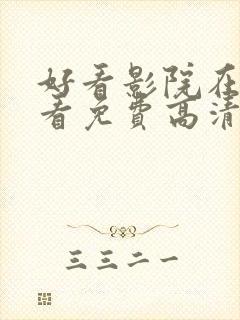 好看影院在
看免费高清
三三二一